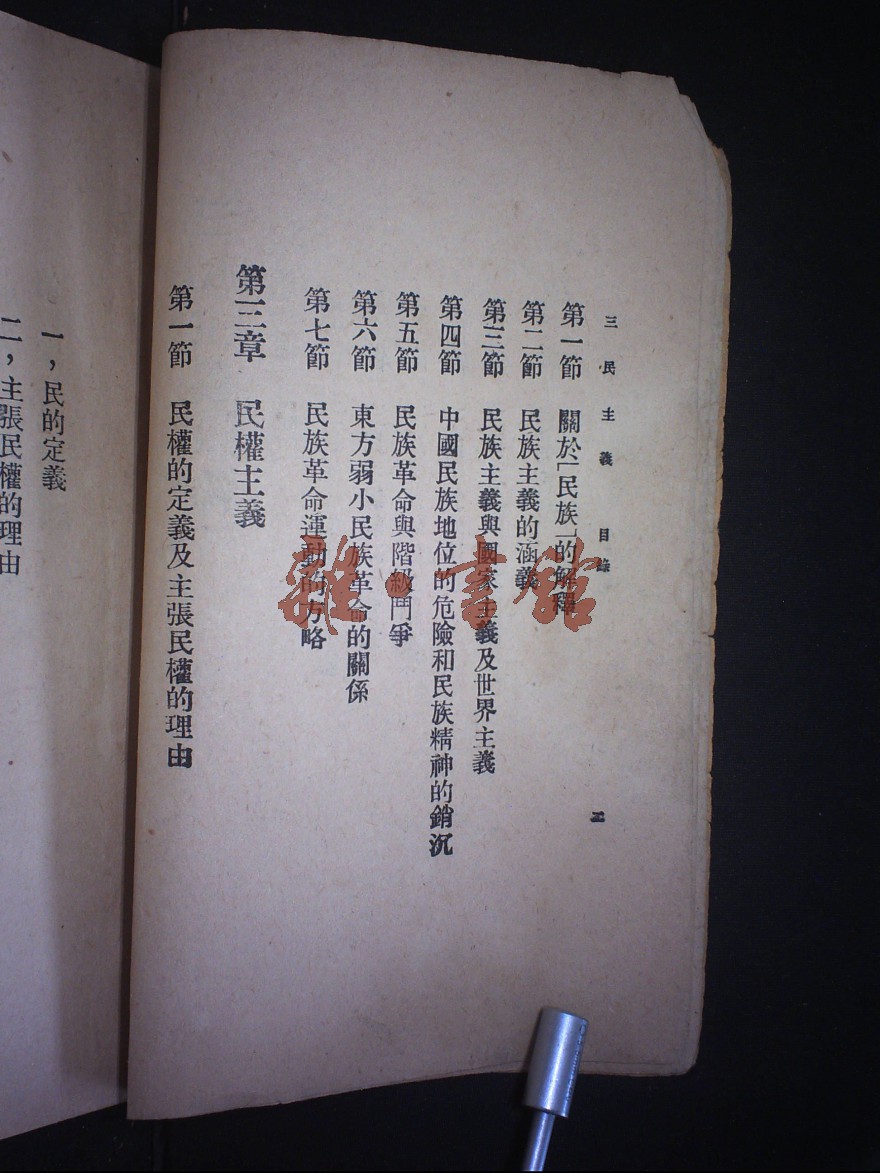 三民主義 目錄 二
第一節 關於「民族」的解釋
第二節 民族主義的涵義
第三節 民族主義與國家主義及世界主義
第四節 中國民族地位的危險和民族精神的銷沉
第五節 民族革命與階級鬥爭
第六節 東方弱小民族革命的關係
第七節 民族革命運動的方略
第三章 民權主義
第一節 民權的定義及主張民權的理由
一，民的定義
二，主張民權的理由
雅·書館